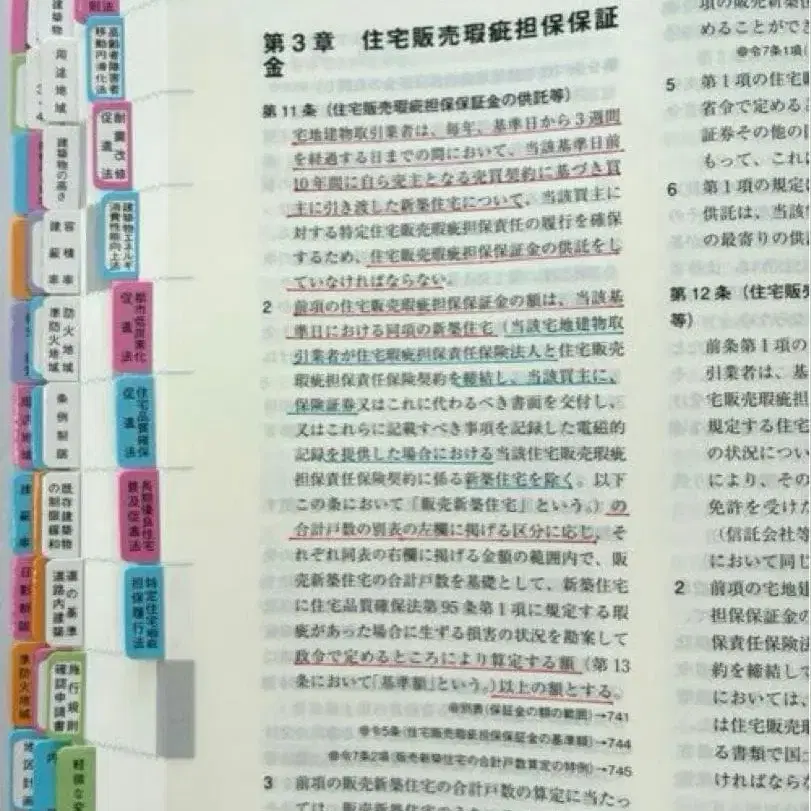 第3章　住宅販売瑕疵担保保証
金
第11条（住宅販売瑕疵担保保証金の供託等）
宅地建物取引業者は、毎年、基準日から3週間
を経過する日までの間において、当該基準日前
10年間に自ら売主となる売買契約に基づき買
主に引き渡した新築住宅について、当該買主に
対する特定住宅販売瑕疵担保責任の履行を確保
するため、住宅販売瑕疵担保保証金の供託をし
ていなければならない。
2　前項の住宅販売瑕疵担保保証金の額は、当該基
準日における同項の新築住宅（当該宅地建物取
引業者が住宅瑕疵担保責任保険法人と住宅販売
瑕疵担保責任保険契約を締結し、当該買主に、
保険証券又はこれに代わるべき書面を交付し、
又はこれらに記載すべき事項を記録した電磁的
記録を提供した場合における当該住宅販売瑕疵
担保責任保険契約に係る新築住宅を除く。以下
この条において「販売新築住宅」という。）の
合計戸数の別表の左欄に掲げる区分に応じ、そ
れぞれ同表の右欄に掲げる金額の範囲内で、販
売新築住宅の合計戸数を基礎として、新築住宅
に住宅品質確保法第95条第1項に規定する瑕
疵があった場合に生ずる損害の状況を勘案して
政令で定めるところにより算定する額（第13
条において「基準額」という。）以上の額とする。
◎別表（保証金の額の範囲）→741
◎令5条（住宅販売瑕疵担保保証金の基準額）→744
◎令7条2項（販売新築住宅の合計戸数算定の特例）→745
3　前項の販売新築住宅の合計戸数の算定に当たっ
項の販売新築住
めることができ
◎令7条1項（
5　第1項の住宅販
省令で定めるこ
証券その他の
もって、これに
6　第1項の規定に
供託は、当該宅
の最寄りの供託
第12条（住宅販売
等）
前条第1項の
引業者は、基
宅販売瑕疵担
規定する住宅
の状況につい
により、その
免許を受けた
（信託会社等
において同じ
2　前項の宅地建
担保保証金の
保責任保険法
約を締結して
においては、
は住宅販売瑕
る書類で国土
ければならな
高齢者障害者
移動円滑化法
耐震改修
促進法
建築物エネルギ
消費性能向上法
都市低炭素化
促進法
住宅品質確保
促進法
長期優良住宅
普及促進法
特定住宅瑕疵
担保履行法
用途地域
建築物の高さ
容積率
建蔽率
防火地域
準防火地域
条例制限
既存建築物
の制限緩和
道の基準
道路内建築
施行規則
確認申請書
建蔽率
日影制限
準防火地域
地区計画
軽微な変